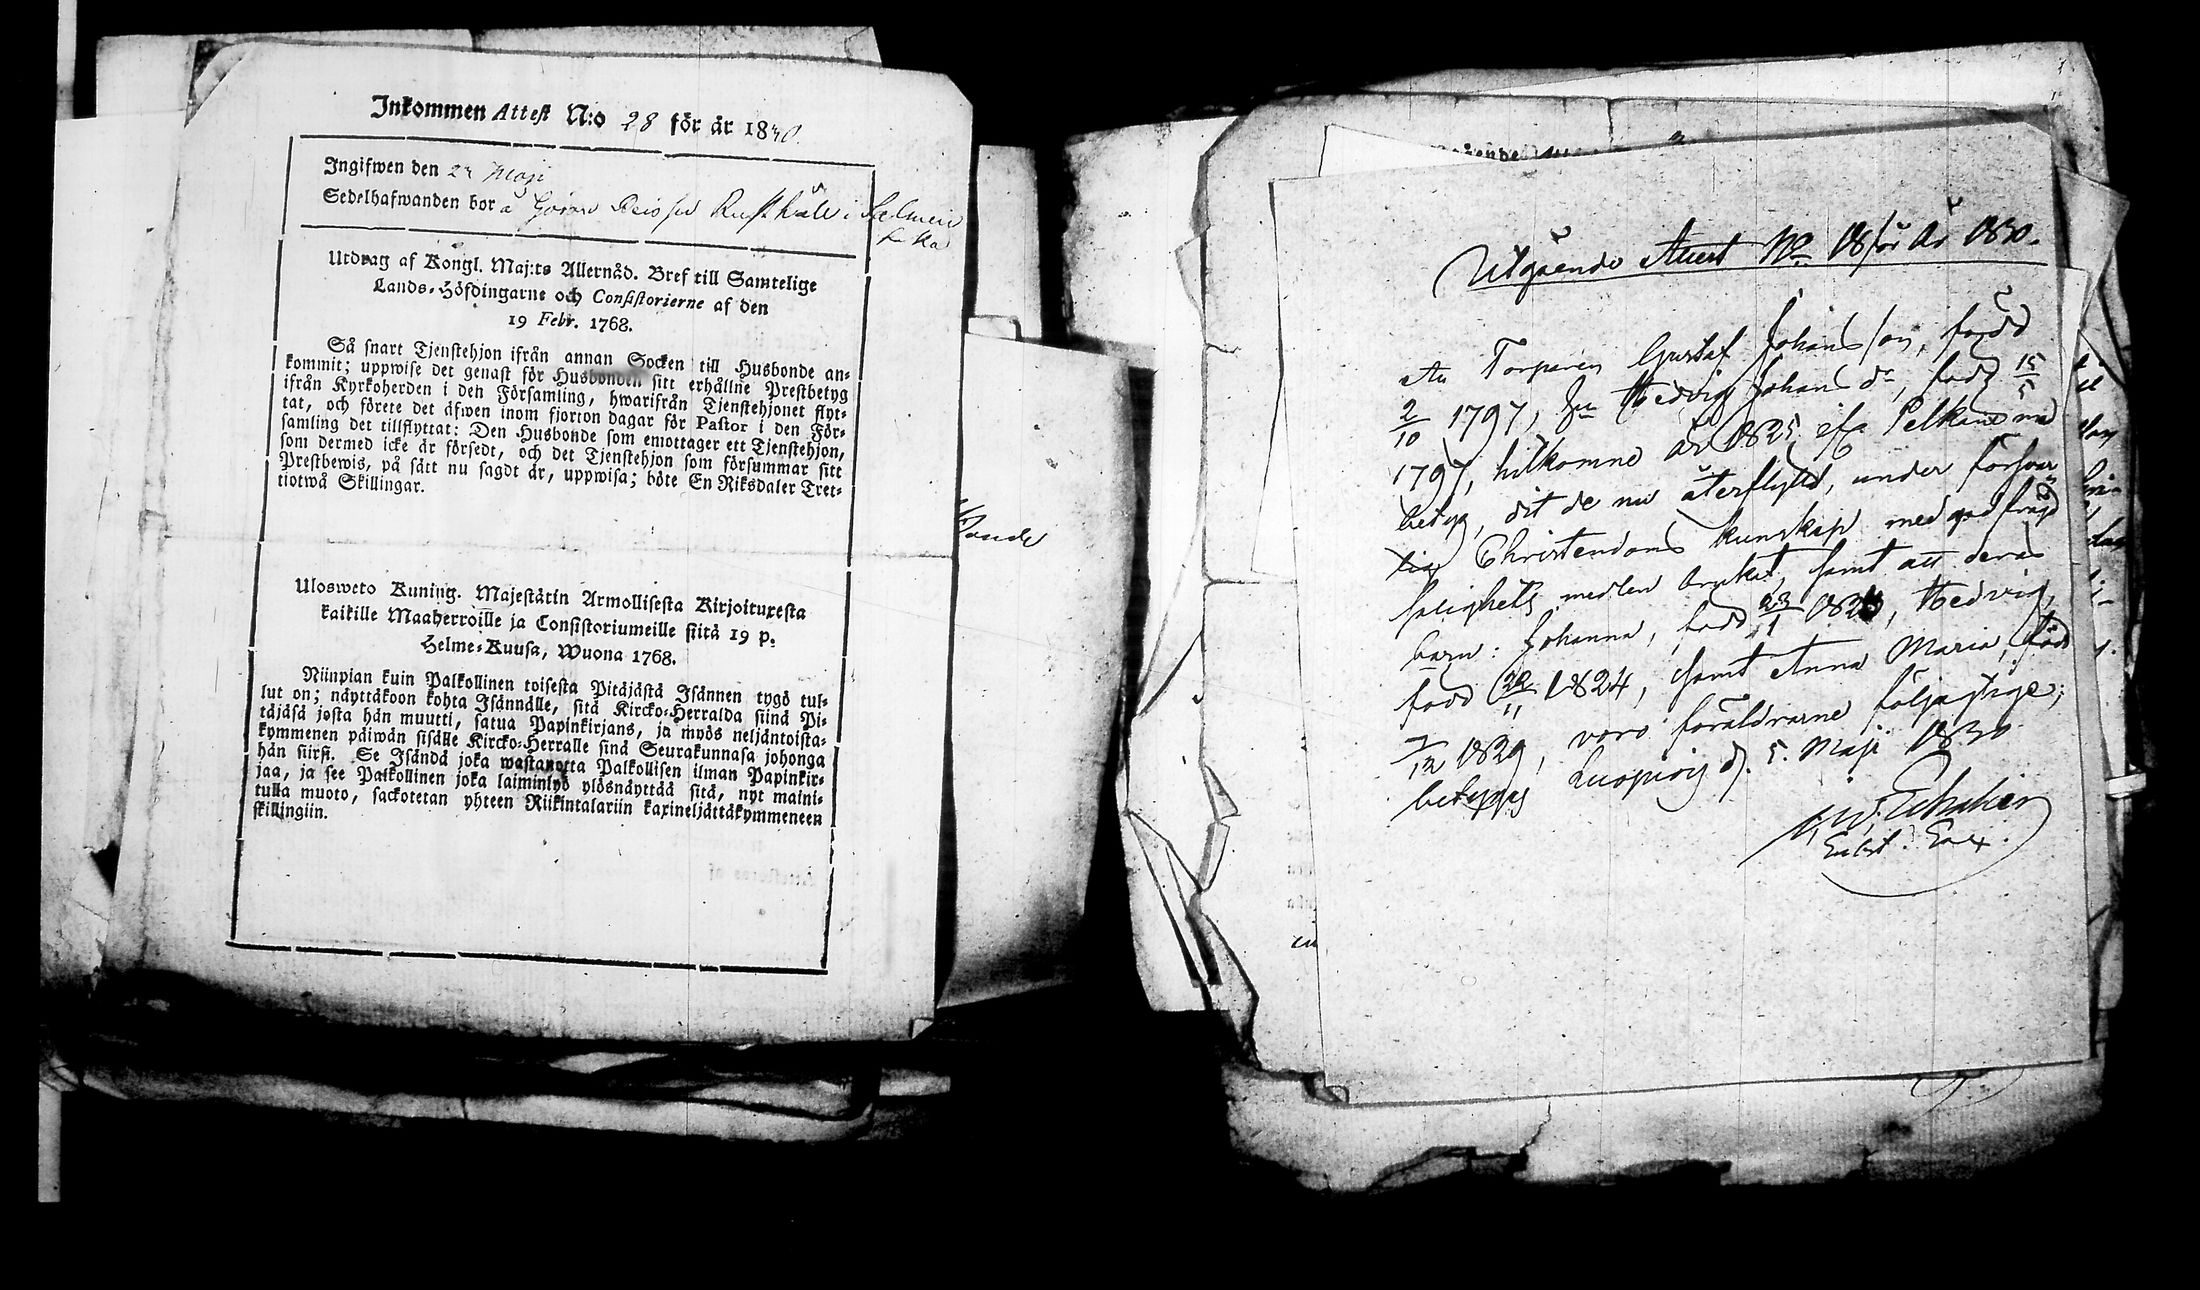 Inkommen Attest N:o 28 för år 1830.
Ingifwen den 23 Maji
Sedelhafwanden bor å Rusthåll i
Utdrag af Kongl. Maj:ts Allernåd. Bref till Samtelige
Lands-Höfdingarne och Consistorierne af den
19 Febr. 1768.
Så snart Tjenstehjon ifrån annan Socken till Husbonde an-
kommit; uppwise det genast för Husbonden sitt erhållne Prestbetyg
ifrån Kyrkoherden i den Församling, hwarifrån Tjenstehjonet flyt-
tat, och förete det äfwen inom fjorton dagar för Pastor i den För-
samling det tillflyttat: Den Husbonde som emottager ett Tjenstehjon,
som dermed icke är försedt, och det Tjenstehjon som försummar sitt
Prestbewis, på sått nu sagdt är, uppwisa; böte En Riksdaler Tret-
tiotwå Skillingar.
Ulosweto Kuning. Majestätin Armollisesta Kirjoituxesta
kaikille Maaherroille ja Consistoriumeille siitä 19 p.
Helme-Kuusa, Wuona 1768.
Niinpian kuin Palkollinen toisesta Pitäjästä Isännen tygö tul-
lut on; näyttäkoon kohta Isännälle, sitä Kircko-Herralda siinä Pi-
täjäsä josta hän muutti, satua Papinkirjans, ja myös neljäntoista-
kymmenen päiwän sisälle Kircko-Herralle sinä Seurakunnasa johonga
hän siirsi. Se Isändä joka wastanotta Palkollisen ilman Papinkir-
jaa, ja see Palkollinen joka laiminlyö ylösnäyttää sitä, nyt maini-
tulla muoto, sackotetan yhteen Riikintalariin kaxineljättäkymmeneen
skillingiin.
Bonde
Utgående Attest No 18 för År 1830.
Att Torparen Gustaf Johansson, född
2/10 1797, Hu Hedvig Johansdr, född 15/5
1797, hitkomne år 1825 ifr Pelkäne med
betyg, dit de nu återflytta, under försvar
lig Christendoms kunskap med god frägd
salighets medlen brukat, samt att deras
barn: Johanna, född 23/1 1823, Hedvig,
född 22/11 1824, samt Anna Maria, född
7/12 1829, voro föräldrarne följagtige;
betygas Luopiois d. 5. Maji 1830